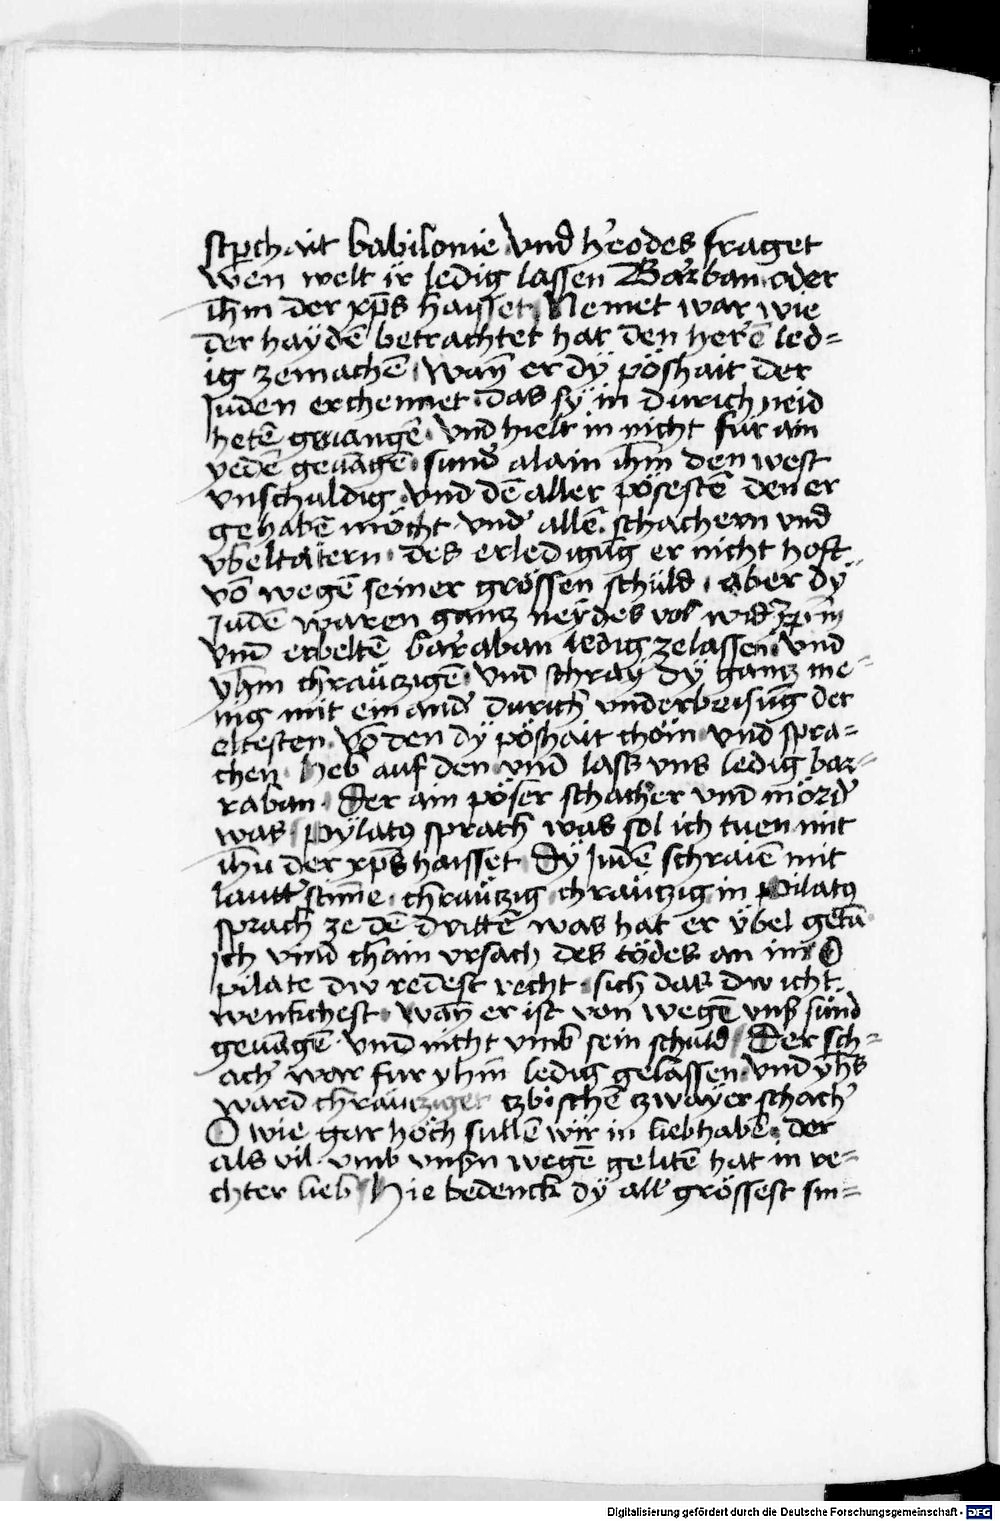 sterchait babilonie Vnd h'eodes fraget
wen welt ir ledig lassen Barrban oder
ihm der xp̄s haisset Nemet war wie
der haÿdē betrachtet hat den her'ē led=
ig zemachē Wan̄ er dÿ pöshait der
Juden erchennet das sÿ in durich neid
hetē geuangē Vnd hielt in nicht für ain
yedē geuāgē sund' alain ihm̄ den west
vnschuldig vnd dē aller pösestē den er
gehabē möcht vnd' allē schachern vnd
vbeltätern des erledigūg er nicht hoft
vō wegē seiner grössen schuld aber dÿ
Judē waren gancz neÿdes vol wid'
vnd erbeltē bar'aban ledig zelassen Vnd
yhm chräuczigē Vnd schray dÿ gancz me=
nig mit ein and' durich vnderbeisūg der
eltesten Vō den dÿ pöshait chöm vnd spra=
chen Heb auf den vnd lass vns ledig bar=
raban Der ain pöser schacher vnd mörd'
was Pÿlatus sprach was sol ich tuen mit
ihu der xp̄s haisset Dÿ Judē schraiē mit
laut' stim̄e chräuczig chräuczig in Pilatus
sprach ze dē drittē was hat er übel getā
ich vind chain vrsach des tödes an im O
pilate dw redest recht sich das dw icht
wenkchest Wan̄ er ist von wegē vns' sünd
geuāgē Vnd nicht vmb sein schuld Der sch=
ach' war fur yhm̄ ledig gelassen Vnd yh̄s
ward chräucziget czbischē czwayer schach'
O wie gar hoch sullē wir in liebhabē der
als vil vmb vnsn wegē gelitē hat in re=
chter lieb Hie bedenck dÿ all' grössest sm=
Digitalisierung gefördert durch die Deutsche Forschungsgemeinschaft - DFG